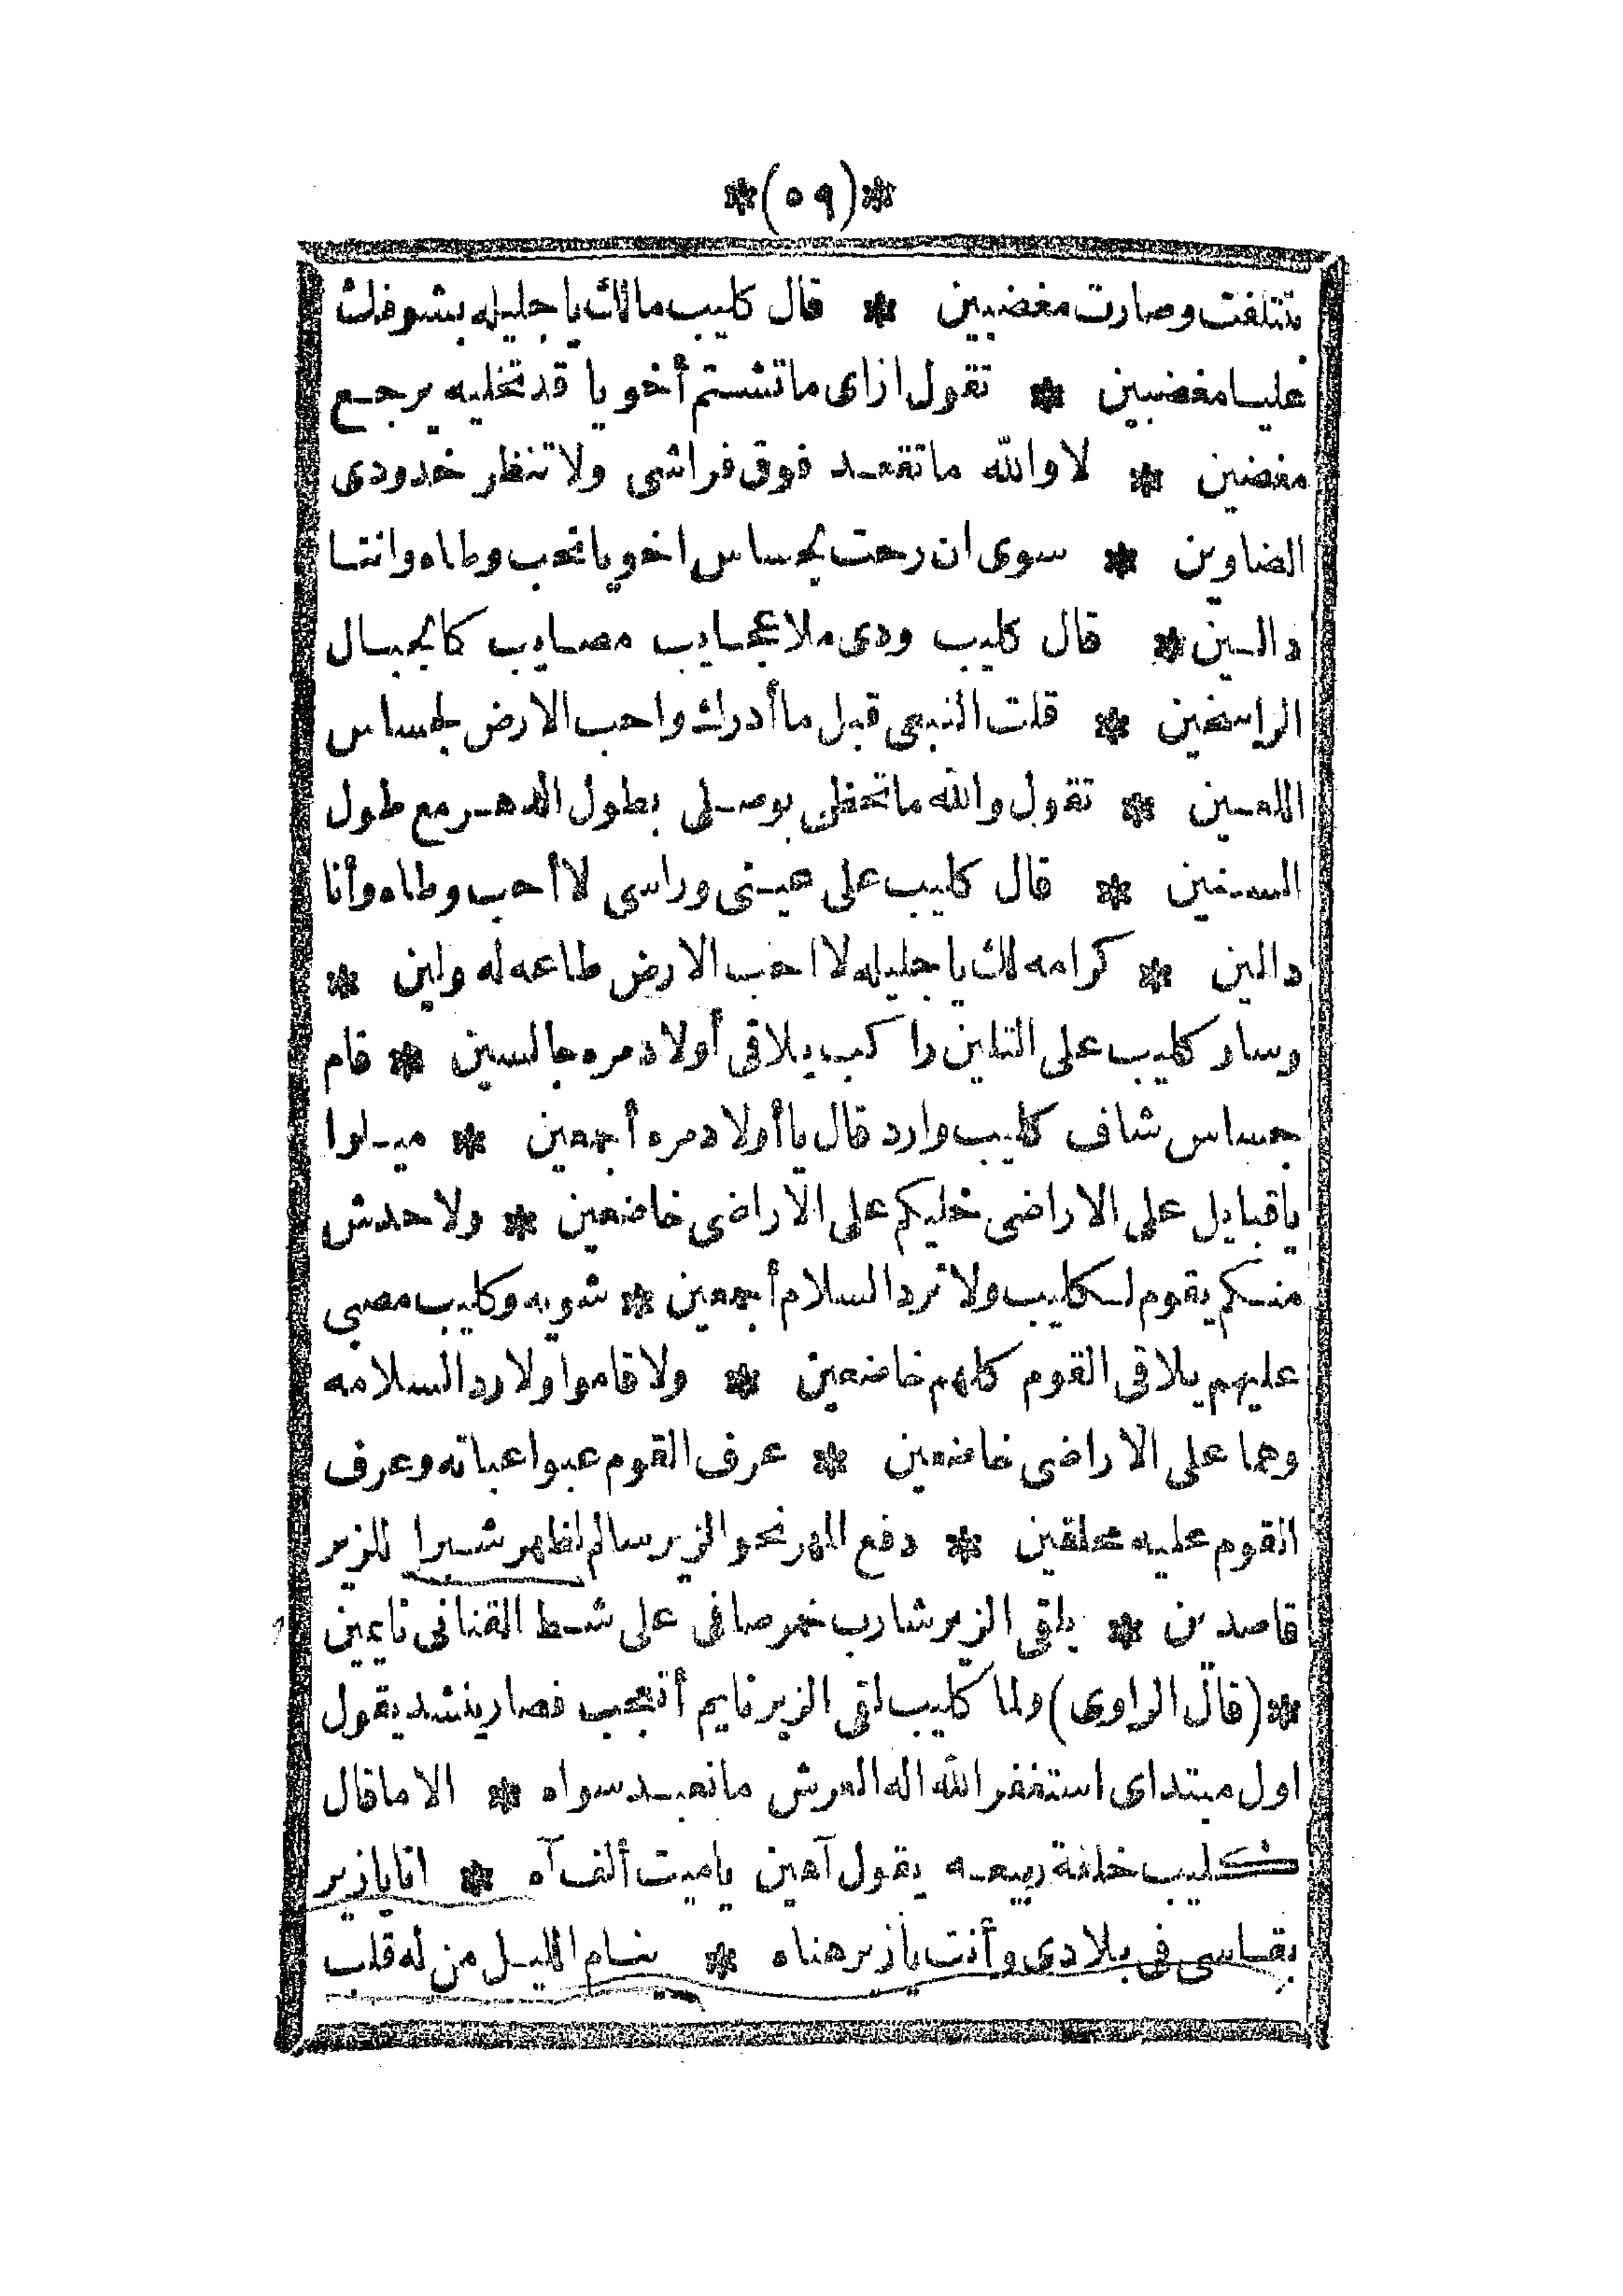 *(٥٩)*
تتلفت وصارت مغضبين * قال كليب مالك يا جليله بشوفك
عليا مغضبين * تقول ازاى ما تشتم أخويا قد تخليه يرجع
مغضين * لا والله ما تقعد فوق فراشى ولا تنظر خدودى
الضاوين * سوى ان رحت لجساس اخويا تحب وطاه وانتا
دالين * قال كليب ودى ملا عجايب مصايب كالجبال
الراسخين * قلت النبى قبل ما أدرك واحب الارض لجساس
اللعين * تقول والله ما تحظى بوصلى بطول الدهر مع طول
السنين * قال كليب على عينى وراسى لا أحب وطاه وأنا
دالين * كرامه لك يا جليله لا احب الارض طاعه له ولين *
وسار كليب على التلين راكب يلاقى أولاد مره جالسين * قام
جساس شاف كليب وارد قال يا أولاد مره أجمعين * ميلوا
يا قبايل على الاراضى خليكم على الاراضى خاضعين * ولا حدش
منكم يقوم لكليب ولا ترد السلام أجمعين * شويه وكليب مصبى
عليهم يلاقى القوم كلهم خاضعين * ولا قاموا ولا رد السلامه
وهما على الاراضى خاضعين * عرف القوم عبوا عباته وعرف
القوم عليه محلقين * دفع المهر نحو الزير سالم لظهر شبرا للزير
قاصدين * يلقى الزير شارب خمر صافى على شط القنانى نايمين
*(قال الراوى) ولما كليب لقى الزير نايم أتعجب فصار ينشد يقول
اول مبتداى استغفر الله اله العرش ما نعبد سواه * الا ما قال
كليب خلفة ربيعه يقول آهين ياميت ألف آه * انا يا زير
بقاسى فى بلادى وأنت يا زير هناه * ينام الليل من له قلب